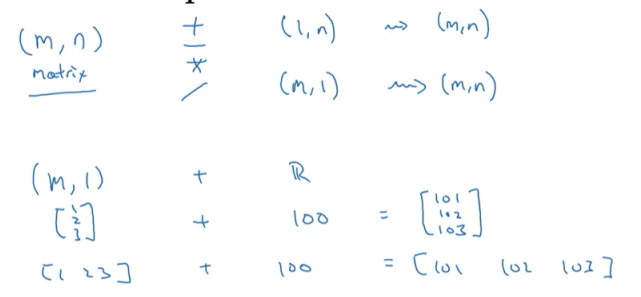 (m,n) + (1,n) ⇝ (m,n)
matrix - *
/ (m,1) ⇝ (m,n)
(m,1) + ℝ
[1 2 3] + 100 = [101 102 103]
[1 2 3] + 100 = [101 102 103]